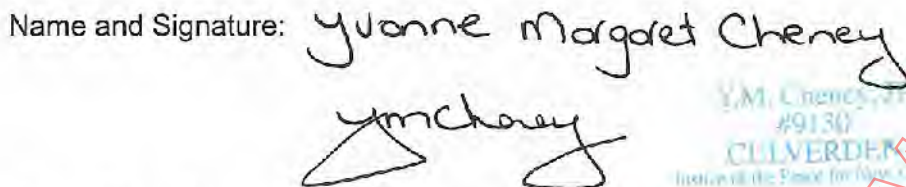 Name and Signature: Yvonne Margaret Cheney
YMCheney
Y.M. Cheney, JP
#9130
CULVERDEN
Justice of the Peace for New